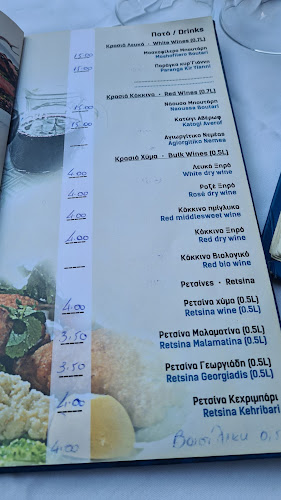 Ποτό / Drinks
Κρασιά Λευκά · White Wines (0.7L)
15.00 Μοσχοφίλερο Μπουτάρη
Moshofilero Boutari
15.00 Παράγκα κυρ'Γιάννη
Paranga Kir Yianni
Κρασιά Κόκκινα · Red Wines (0.7L)
15.00 Νάουσα Μπουτάρη
Naoussa Boutari
Κατώγι Αβέρωφ
Katogi Averof
Αγιωργίτικο Νεμέας
Agiorgitiko Nemea
Κρασιά Χύμα · Bulk Wines (0.5L)
4.00 Λευκό Ξηρό
White dry wine
4.00 Ροζέ Ξηρό
Rosé dry wine
4.00 Κόκκινο ημίγλυκο
Red middlesweet wine
4.00 Κόκκινο Ξηρό
Red dry wine
Κόκκινο Βιολογικό
Red bio wine
Ρετσίνες · Retsina
4.00 Ρετσίνα χύμα (0.5L)
Retsina wine (0.5L)
3.50 Ρετσίνα Μαλαματίνα (0.5L)
Retsina Malamatina (0.5L)
3.50 Ρετσίνα Γεωργιάδη (0.5L)
Retsina Georgiadis (0.5L)
4.00 Ρετσίνα Κεχριμπάρι
Retsina Kehribari
4.00 Βασιλική 0,5